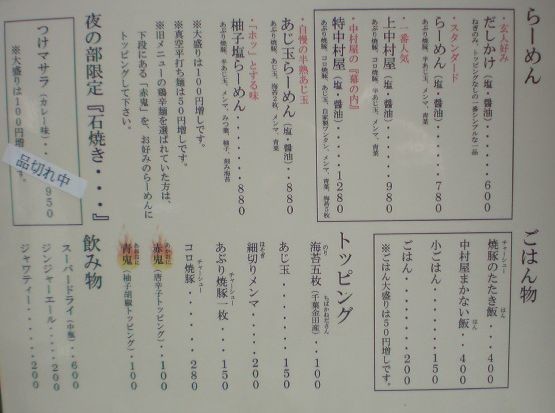 らーめん
・玄人好み
だしかけ（塩・醤油）・・・・・600
ねぎのみ、トッピングなしの一番シンプルな一品
・スタンダード
らーめん（塩・醤油）・・・・・780
あぶり焼豚、半あじ玉、メンマ、青菜
・一番人気
上中村屋（塩・醤油）・・・・・980
あぶり焼豚、コロ焼豚、半あじ玉、メンマ、青菜
・中村屋の『幕の内』
特中村屋（塩・醤油）・・・・・1280
あぶり焼豚、コロ焼豚、あじ玉、自家製ワンタン、メンマ、青菜、海苔5枚
・自慢の半熟あじ玉
あじ玉らーめん（塩・醤油）・・880
あぶり焼豚、あじ玉、海苔2枚、メンマ、青菜
・「ホッ」とする味
柚子塩らーめん・・・・・・・880
あぶり焼豚、半あじ玉、メンマ、みつ葉、柚子、刻み海苔
※大盛りは100円増しです。
※真空平打ち麺は50円増しです。
※旧メニューの鶏辛麺を選ばれていた方は、
下段にある「赤鬼」を、お好みのらーめんに
トッピングして下さい。
夜の部限定『石焼き・・・』
つけマサラ（カレー味）・・・950
※大盛りは100円増です。
品切れ中
ごはん物
チャーシュー
焼豚のたたき飯・・・・400
はん
中村屋まかない飯・・・400
小ごはん・・・・・・・150
ごはん・・・・・・・・200
※ごはん大盛りは50円増しです。
トッピング
のり
海苔五枚（千葉金田産）・・100
ちばかねださん
あじ玉・・・・・・・・150
ほそぎ
細切りメンマ・・・・・200
チャーシュー
あぶり焼豚一枚・・・・150
チャーシュー
コロ焼豚・・・・・・・280
赤鬼（唐辛子トッピング）・・100
青鬼（柚子胡椒トッピング）・・100
飲み物
スーパードライ（中瓶）・・600
ジンジャーエール・・・・200
ジャワティー・・・・・・200